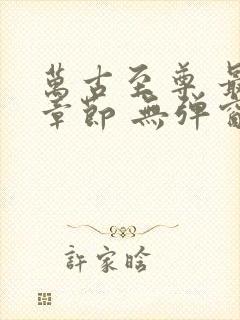 萬古至尊 最
章節 無彈窗
許家晗